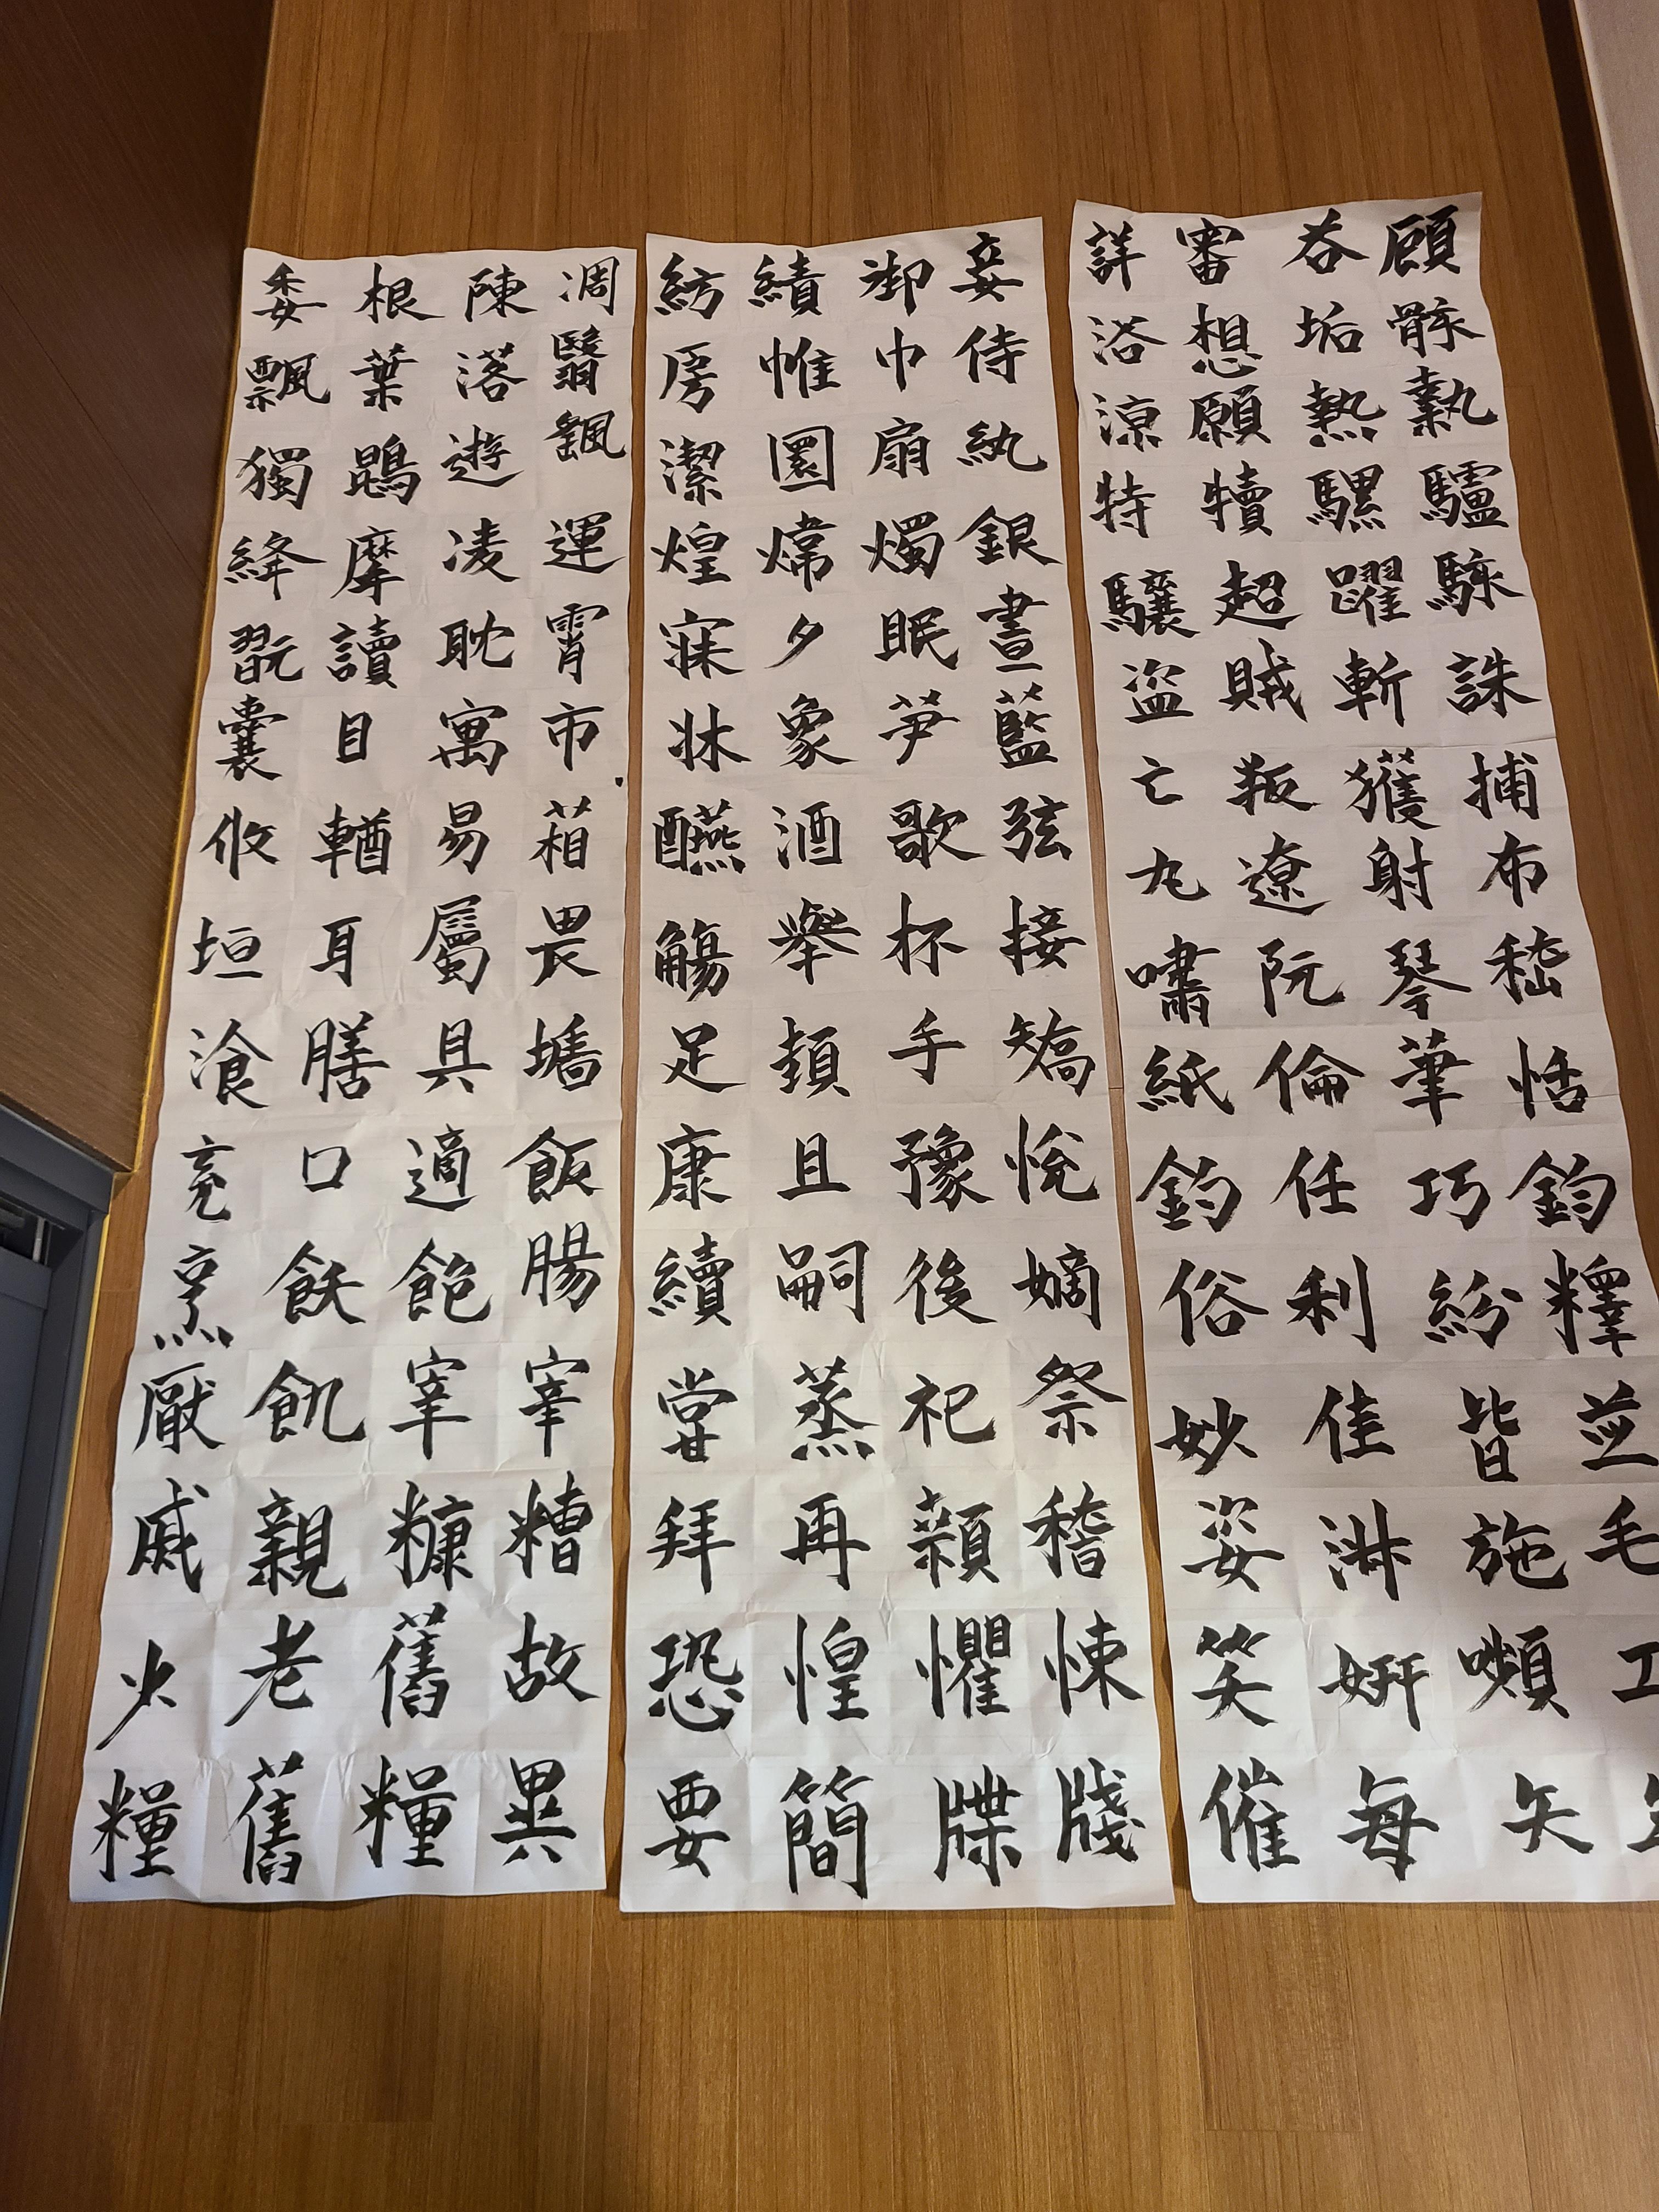 凋陳根委
翳落葉飄
颻遊鵾獨
運凌摩絳
霄耽讀翫
市寓目囊
箱易輶攸
畏屬耳垣
墻具膳湌
飯適口充
腸飽飫烹
宰宰飢厭
糟糠親戚
故舊老少
異糧舊糧
妾御績紡
侍巾帷房
紈扇圓潔
銀燭煒煌
晝眠夕寐
藍笋象牀
弦歌酒醼
接杯舉觴
矯手頓足
悅豫且康
嫡後嗣續
祭祀蒸嘗
稽顙再拜
悚懼惶恐
牋牒簡要
顧荅審詳
骸垢想浴
執熱願涼
驢騾犢特
駭躍超驤
誅斬賊盜
捕獲叛亡
布射遼丸
嵇琴阮嘯
恬筆倫紙
鈞巧任鈞
釋紛利俗
並皆佳妙
毛施淑姿
工嚬妍笑
矢每催